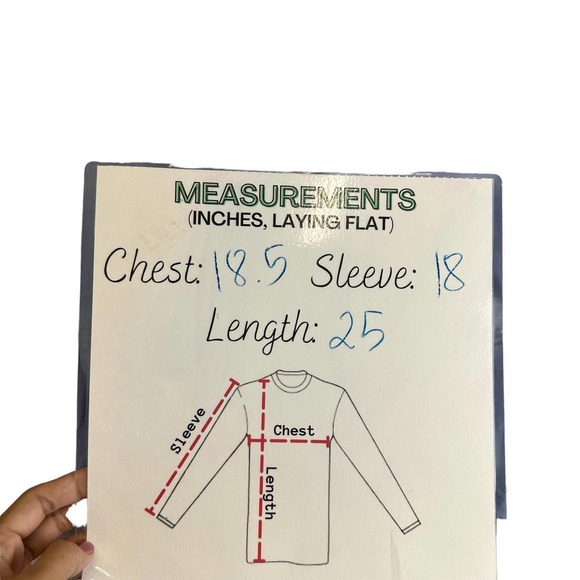 MEASUREMENTS
(INCHES, LAYING FLAT)
Chest: 18.5 Sleeve: 18
Length: 25
Sleeve
Chest
Length